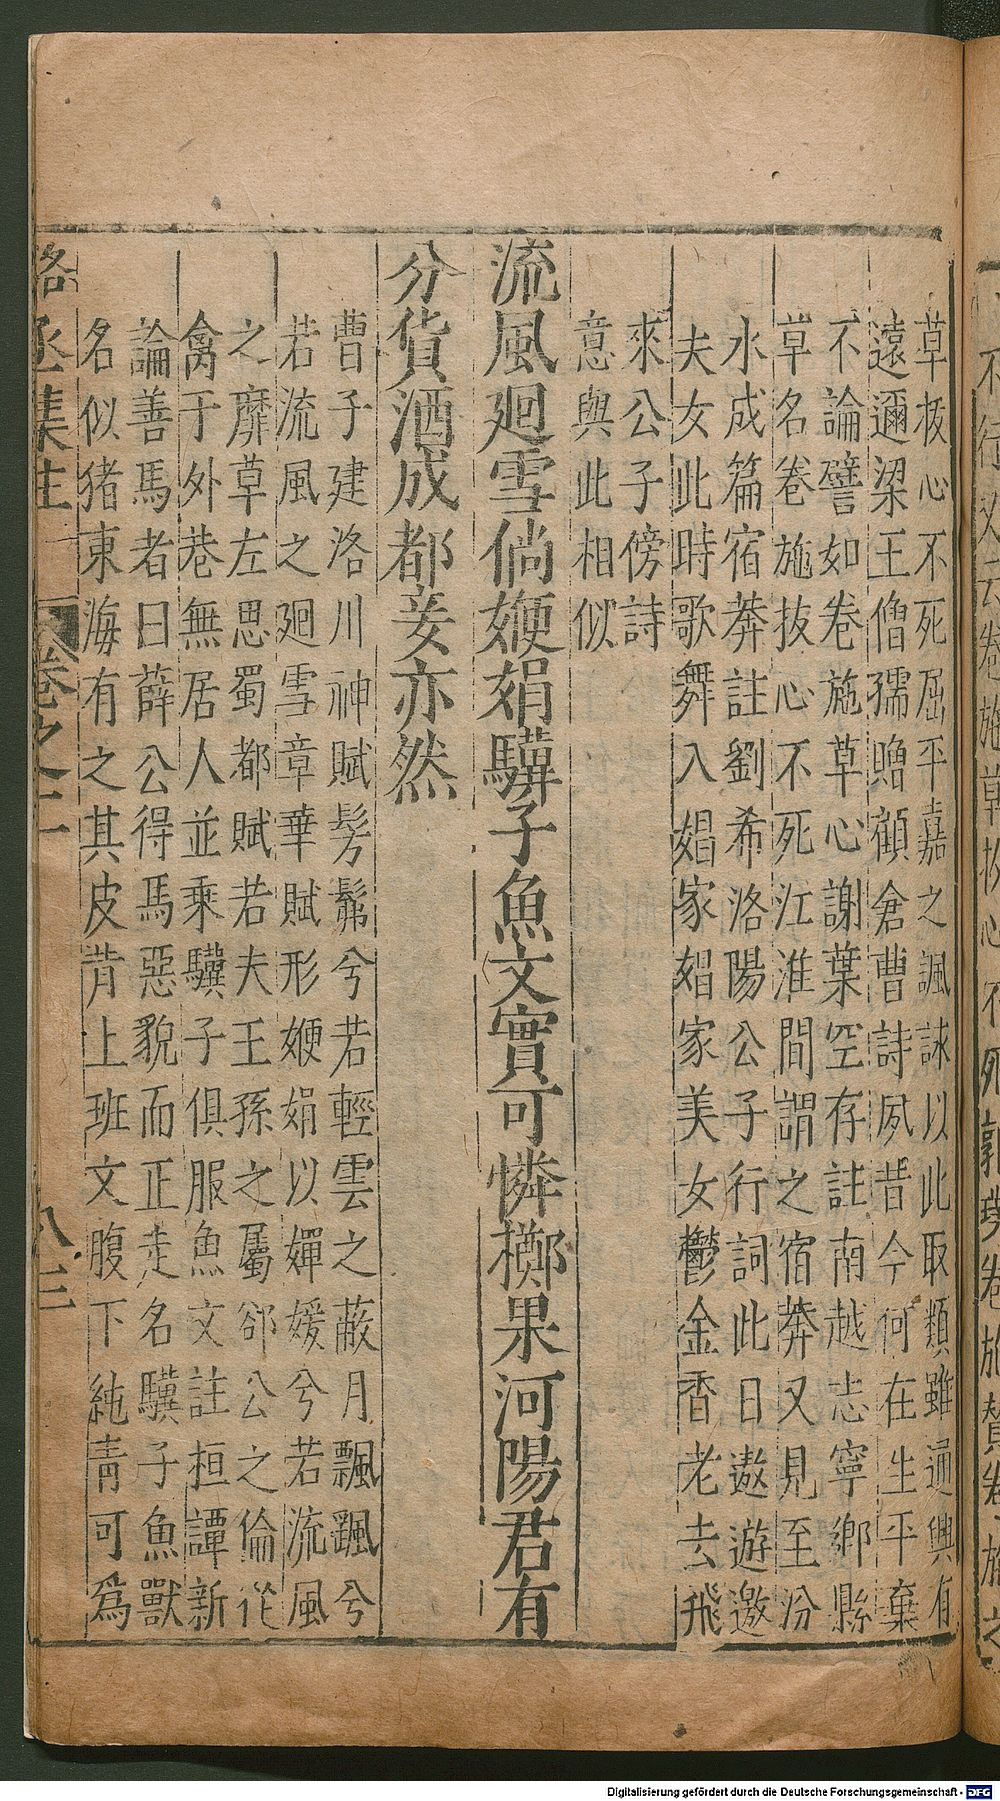 草枝心不死屈平嘉之諷詠以此取類雖通興有
遠邇梁王僧孺贈顧倉曹詩夙昔今何在生平棄
不論譬如卷葹草心謝葉空存註南越志寧鄉縣
草名卷施抜心不死江淮間謂之宿莽又見至汾
水成篇宿莽註劉希洛陽公子行詞此日遨遊邀
夫女此時歌舞入娼家娼家美女鬱金香老去飛
來公子傍詩
意與此相似
流風廻雪倘㛹娟驥子魚文實可憐擲果河陽君有
分貨酒成都妾亦然
曹子建洛川神賦髣髴兮若輕雲之蔽月飄颻兮
若流風之廻雪章華賦形㛹娟以嬋媛兮若流風
之靡草左思蜀都賦若夫王孫之屬郤公之倫從
禽于外巷無居人並乘驥子俱服魚文註桓譚新
論善馬者曰薛公得馬惡貌而正走名驥子魚獸
名似猪東海有之其皮背上班文腹下純青可爲
駱丞集註
卷之二
八三
不行又云卷施草抜心不死郭璞卷施贊卷施之
Digitalisierung gefördert durch die Deutsche Forschungsgemeinschaft - DFG